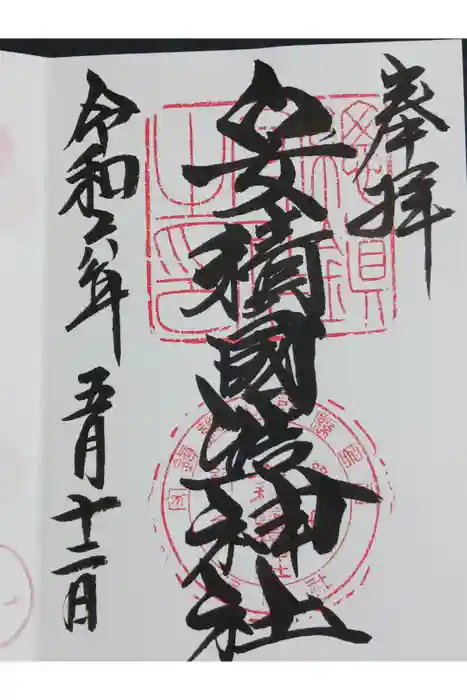 奉拝
安積國造神社
令和六年 五月十二日